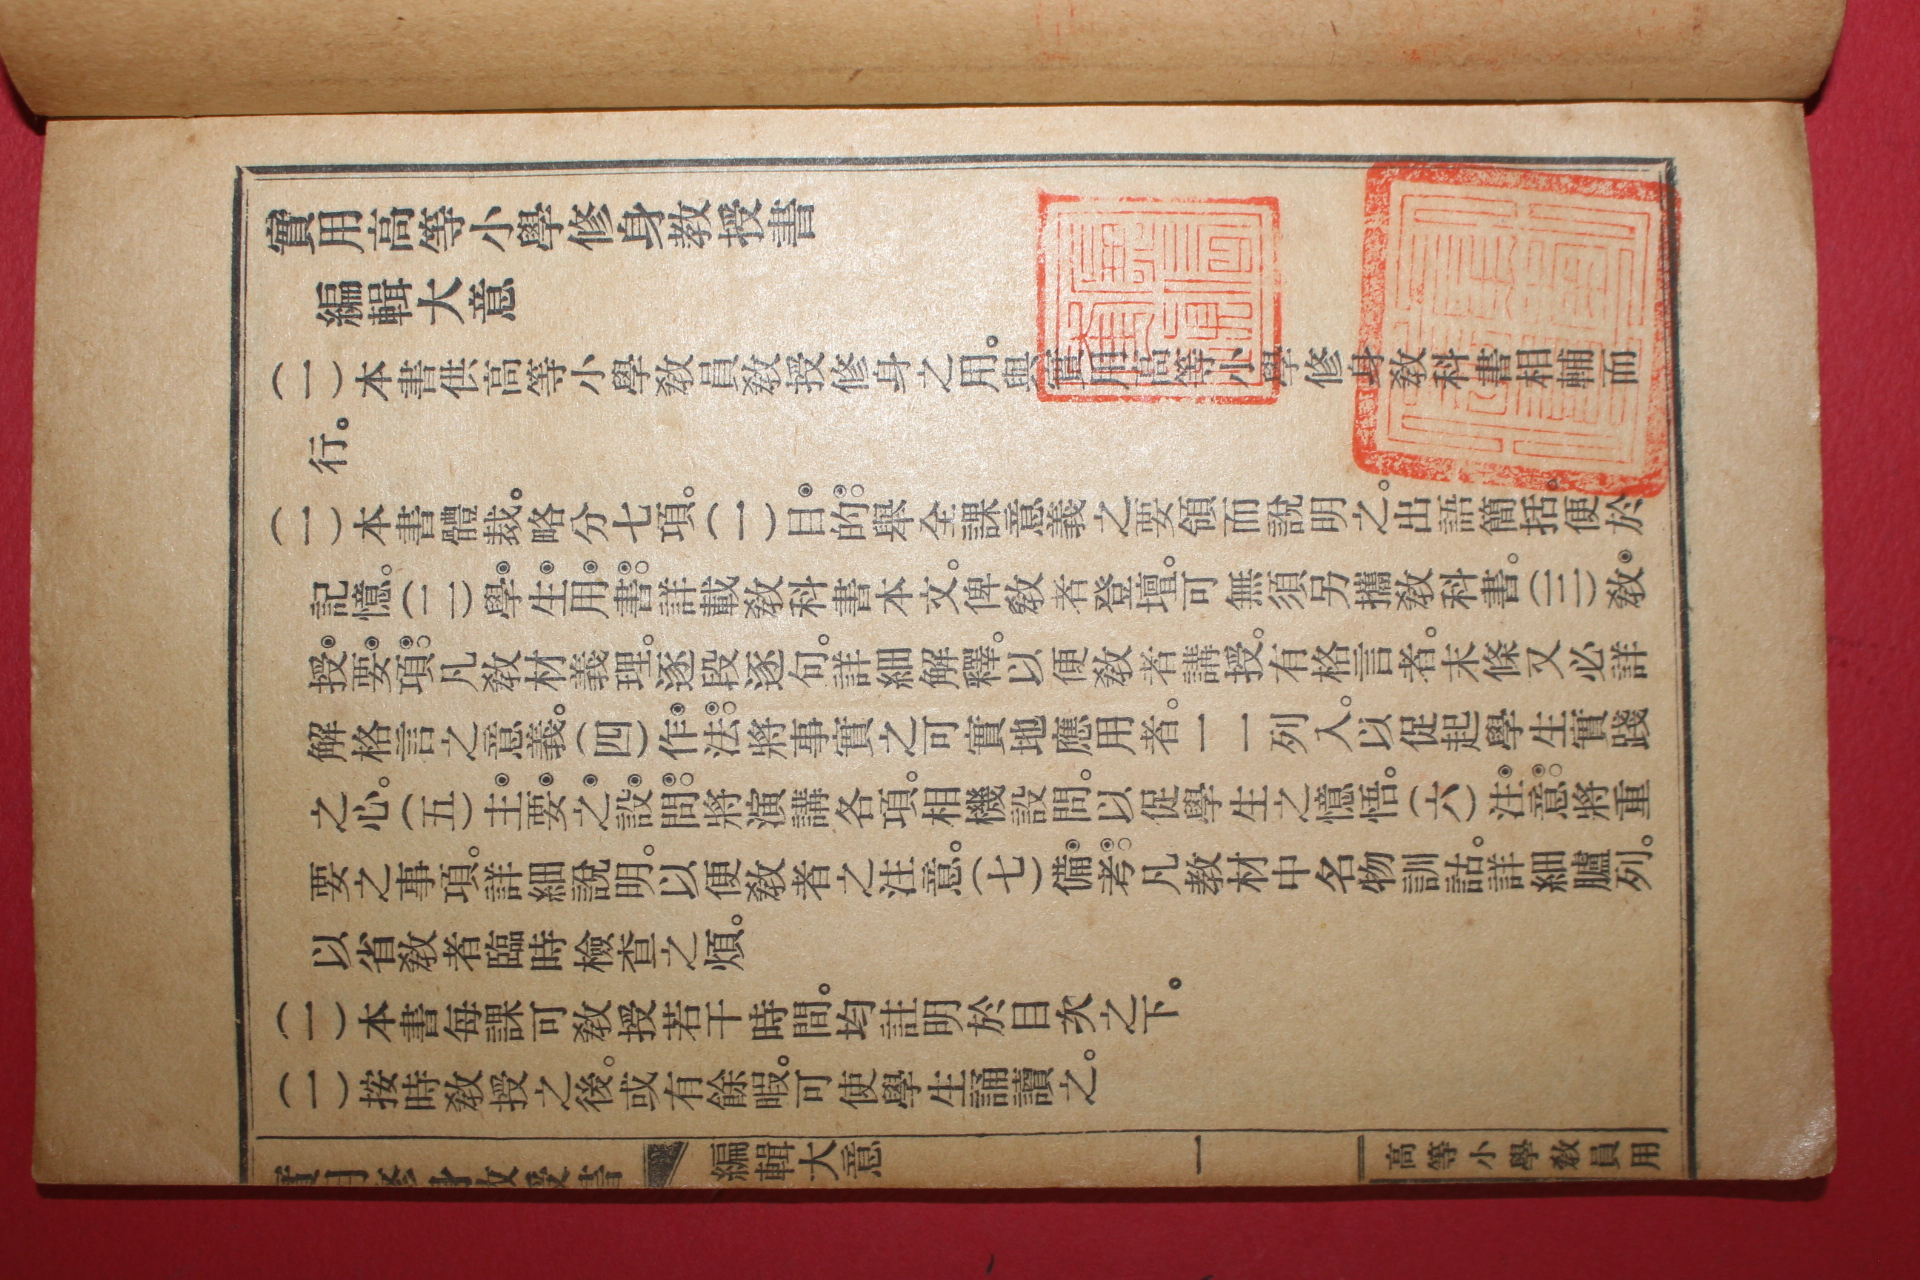 實用高等小學修身教授書
編輯大意
(一)本書供高等小學教員教授修身之用。與實用高等小學修身教科書相輔而
行。
(一)本書體裁。略分七項。(一)目的。舉全課意義之要領而說明之。出語簡括。便於
記憶。(二)學生用書。詳載教科書本文。俾教者登壇。可無須另攜教科書。(三)教
授要項。凡教材義理。逐段逐句。詳細解釋。以便教者講授。有格言者。末條又必詳
解格言之意義。(四)作法。將事實之可實地應用者。一一列入。以促起學生實踐
之心。(五)主要之設問。將演講各項。相機設問。以促學生之憶悟。(六)注意。將重
要之事項。詳細說明。以便教者之注意。(七)備考。凡教材中名物訓詁。詳細臚列。
以省教者臨時檢查之煩。
(一)本書每課可教授若干時間。均註明於目次之下。
(一)按時教授之後。或有餘暇。可使學生誦讀之。
實用修身教授書 編輯大意 一 高等小學教員用